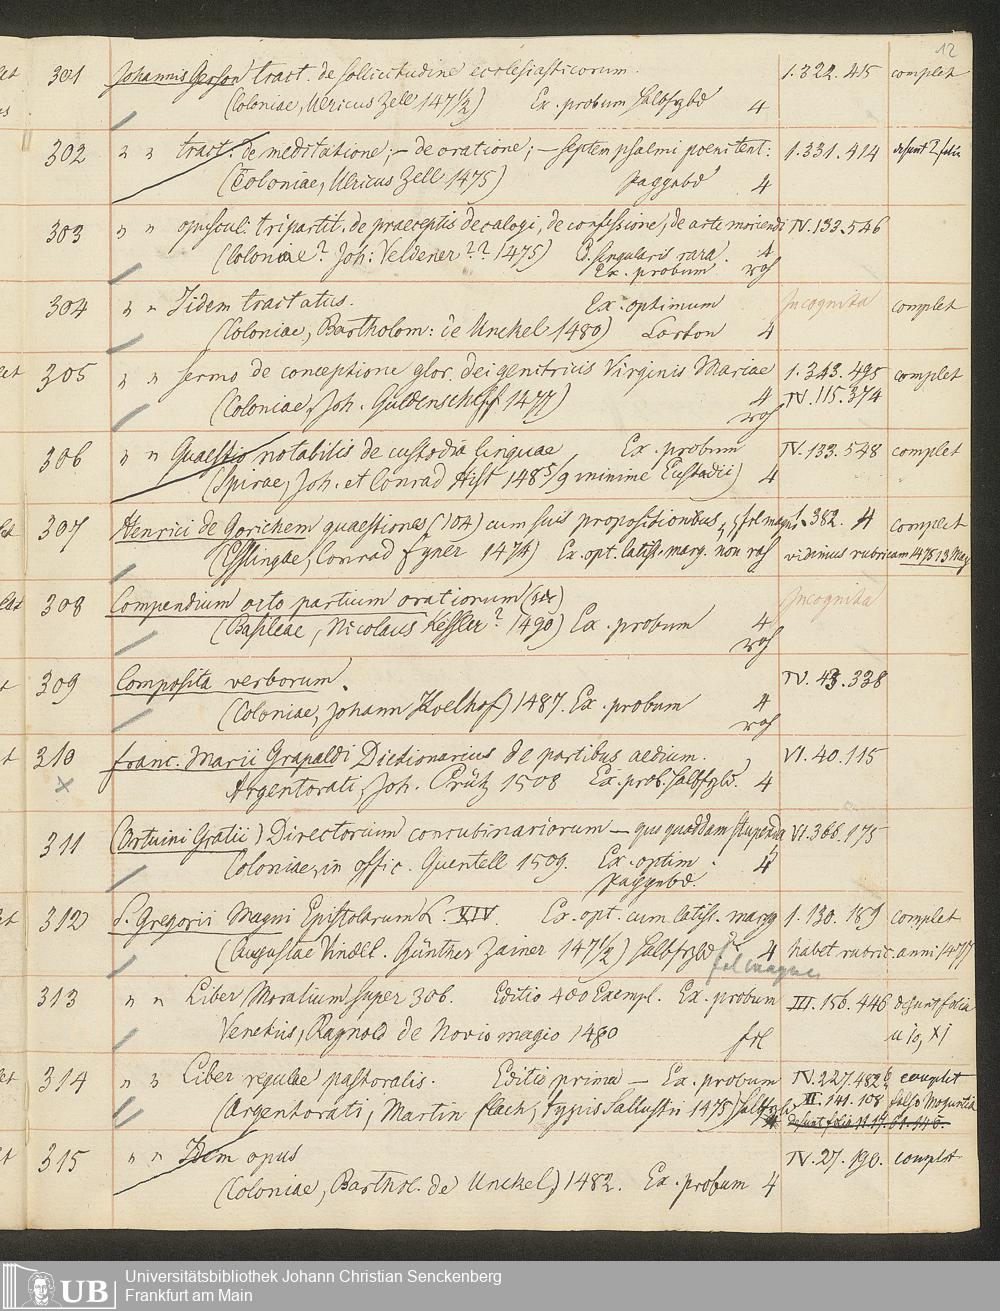 12
301 Johannis Gerson tract. de sollicitudine ecclesiasticorum. 1.322.415 complet
(Coloniae, Ulricus Zell 1471/2) Ex. probum Halbfrzbd 4
302 " " tract. de meditatione; – de oratione; – septem psalmi poenitent: 1.331.414 desunt 2 folia
(Coloniae, Ulricus Zell 1475) Pappnbd 4
303 " " opuscul: tripartit. de praeceptis decalogi, de confessione, de arte moriendi IV.133.546
(Coloniae? Joh: Veldener?? 1475) Ed. singularis rara. 4
Ex. probum roh
304 " " Iidem tractatus. Ex. optimum Incognita complet
(Coloniae, Bartholom: de Unckel 1480) Carton 4
305 " " sermo de conceptione glor. dei genitricis Virginis Mariae 1.343.495 complet
(Coloniae, Joh. Guldenschaff 1477) 4 IV.115.374
roh
306 " " Quaestio notabilis de custodia linguae Ex. probum IV.133.548 complet
(Spirae, Joh. et Conrad Hist 1485/9 minime Eustadii) 4
307 Henrici de Gorichem quaestiones (104) cum suis propositionibus, fol magn 1.382. 4 complet
(Esslingae, Conrad Fyner 1474) Ex. opt. latiss. marg. non roh vidimus rubricam 1475 13 May
308 Compendium octo partium orationum Incognita
(Basileae, Nicolaus Kessler? 1490) Ex. probum 4
roh
309 Composita verborum. IV.43.338
(Coloniae, Johann Koelhof) 1487. Ex. probum 4
roh
310 Franc. Marii Grapaldi Dictionarius de partibus aedium. VI.40.115
x Argentorati, Joh. Prütz 1508 Ex. prob. Halbfrzbd. 4
311 (Ortuini Gratii) Directorium concubinariorum – qus quoddam stupenda VI.366.175
Coloniae, in offic. Quentell 1509. Ex. optim. 4
Pappnbd.
312 S. Gregorii Magni Epistolarum L. XIV. Ex. opt. cum latiss. marg 1.130.189 complet
(Augustae Vindel. Günther Zainer 1471/2) Halbfrzbd 4 habet rubric. anni 1477
fol magno
313 " " Liber Moralium super Iob. Editio 400 Exempl. Ex. probum III.156.446 desunt folia
Venetiis, Raynold de Novio magio 1480 fol
314 " " Liber regulae pastoralis. Editio prima – Ex. probum IV.227.482 complet
(Argentorati, Martin Flach, typis Sallustii 1475) Halbfrzbd 4 II.141.108 falso Moguntia
315 " " Idem opus IV.27.190. complet
(Coloniae, Barthol. de Unckel) 1482. Ex. probum 4
UB
Universitätsbibliothek Johann Christian Senckenberg
Frankfurt am Main